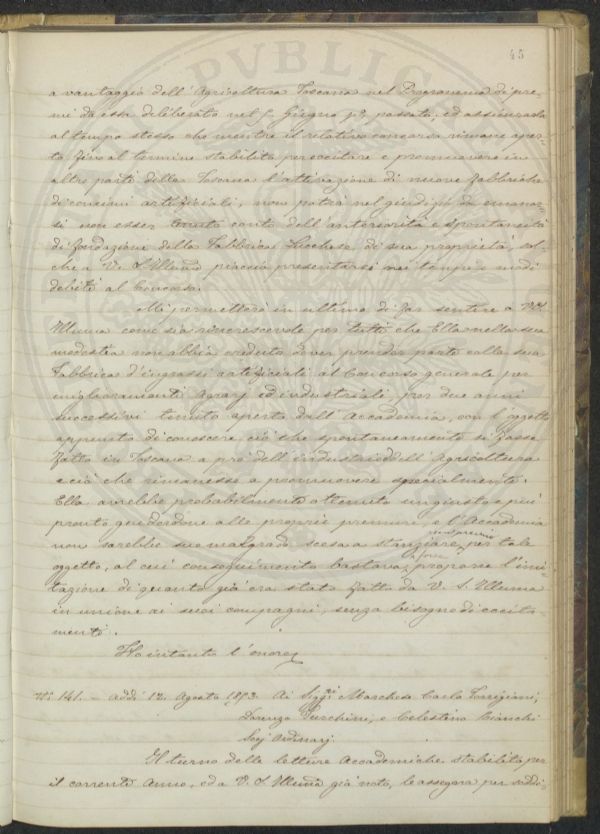 45
a vantaggio dell'Agricoltura Toscana nel Programma di pre-
mi da essa deliberato nel Giugno pº passato, ed assicurarla
al tempo stesso che mentre il relativo concorso rimane aper-
to fino al termine stabilito per eccitare e promuovere in
altre parti della Toscana l'attivazione di nuove fabbriche
di concimi artificiali, non potrà nel giudizio da emanar-
si non esser tenuto conto dell'anteriorità e spontaneità
di fondazione della Fabbrica Lucchese di sua proprietà, sol-
che a V. S. Illma piaccia presentarsi nei tempi e modi
debiti al Concorso.
Mi permetterò in ultimo di far sentire a V. S.
Illma come sia rincrescevole per tutti che Ella nella sua
modestia non abbia creduto dover prender parte colla sua
Fabbrica d'ingrassi artificiali al Concorso generale per
miglioramenti Agrarj ed industriali, per due anni
successivi tenuto aperto dall'Accademia, con l'oggetto
appunto di conoscere ciò che spontaneamente si fosse
fatto in Toscana a prò dell'industria e dell'Agricoltura
e ciò che rimanesse a promuovere specialmente.
Ella avrebbe probabilmente ottenuto un giusto e più
pronto guiderdone alle proprie premure, e l'Accademia
non sarebbe suo malgrado scesa a stanziare un premio per tale
oggetto, al cui conseguimento bastava forse proporre l'imi-
tazione di quanto già era stato fatto da V. S. Illma
in unione ai suoi compagni, senza bisogno di eccita-
mento.
Ho intanto l'onore
Nº 141. — Addì 12 Agosto 1873. Ai Siggri Marchese Carlo Torrigiani,
Lorenzo e Celestino Bianchi
Socj Ordinarj.
Il turno delle letture Accademiche stabilito per
il corrente Anno, ed a V. S. Illma già noto, le assegna per